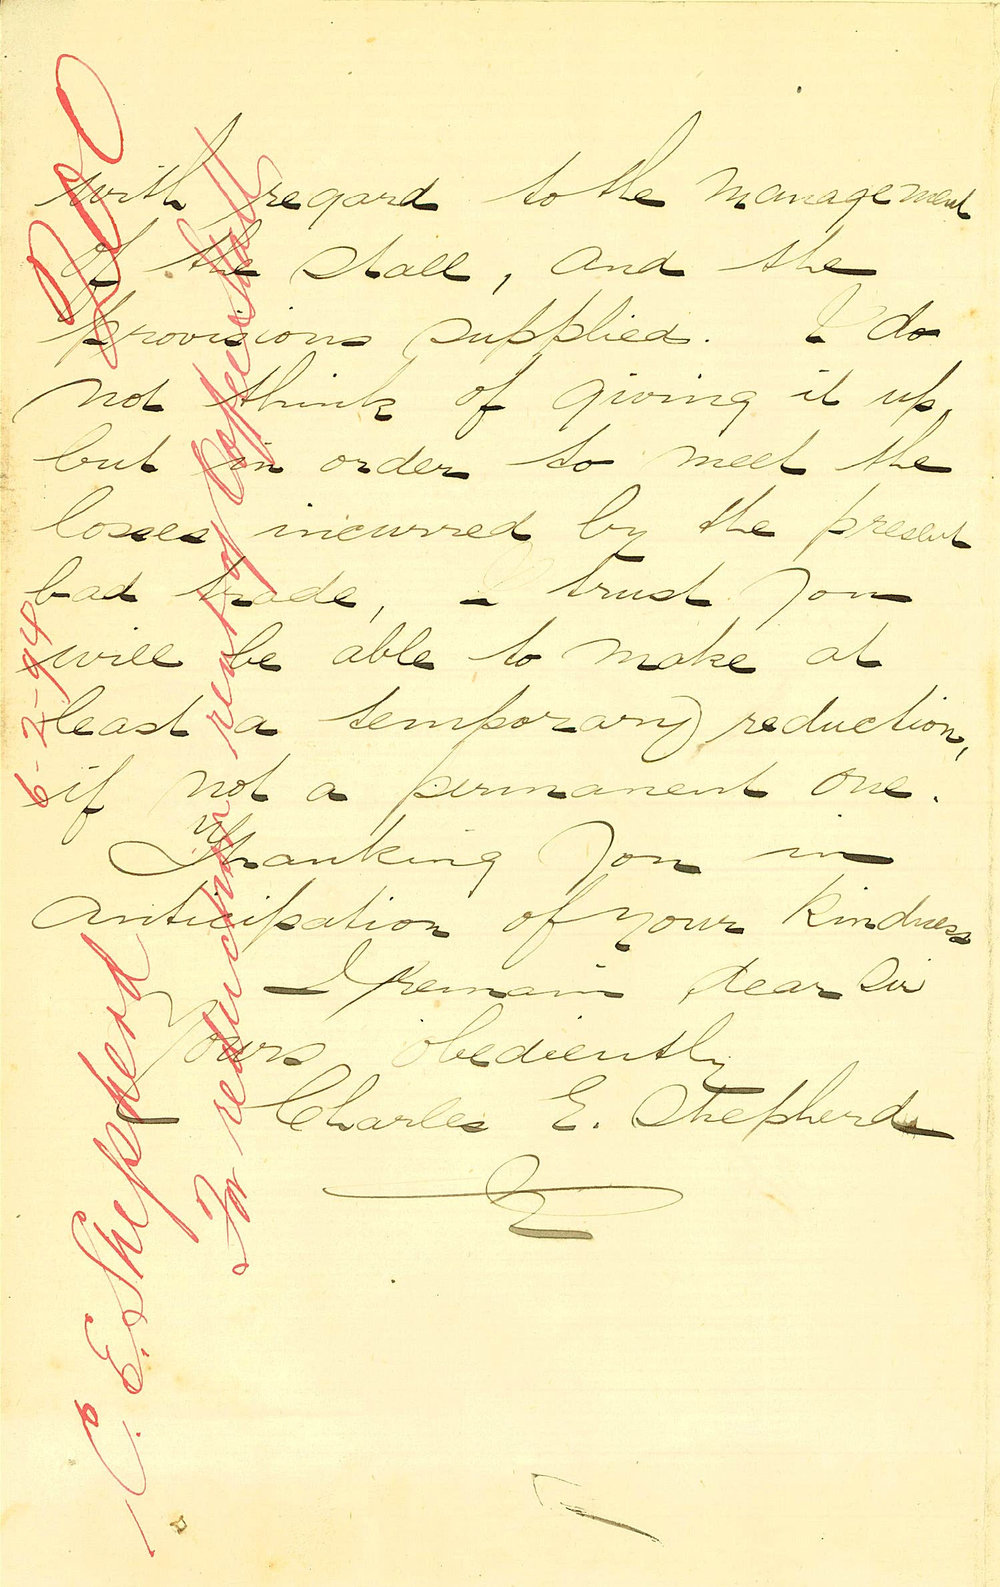 with regard to the management
of the stall, and the
provisions supplied. I do
not think of giving it up,
but in order to meet the
losses incurred by the present
bad trade, I trust you
will be able to make at
least a temporary reduction,
if not a permanent one.
Thanking you in
anticipation of your kindness
I remain dear Sir
Yours obediently
Charles E. Shepherd
C. E. Shepherd
6-2-94
For reduction rent of Coffee Stall